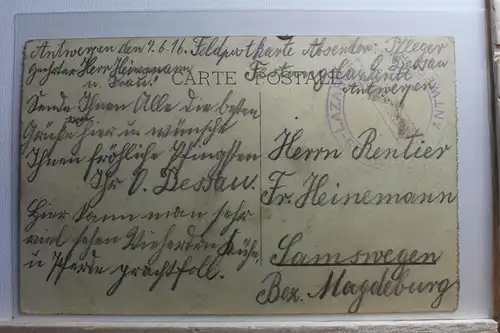 Antwerpen den 7.6.16. Feldpostkarte Absender: Pfleger
O. Dessau
Festungslazarett
Antwerpen
Herr Heinemann
u. Frau!
CARTE POSTALE
Sende Ihnen Alle die besten
Grüße hier u wünsche
Ihnen fröhliche Pfingsten
Ihr O. Dessau.
Hier kann man sehr
viel sehen Viehherden Kühe
u Pferde prachtfoll.
LAZARETT
ANTWERPEN
Herrn Rentier
Fr. Heinemann
Samswegen
Bez. Magdeburg